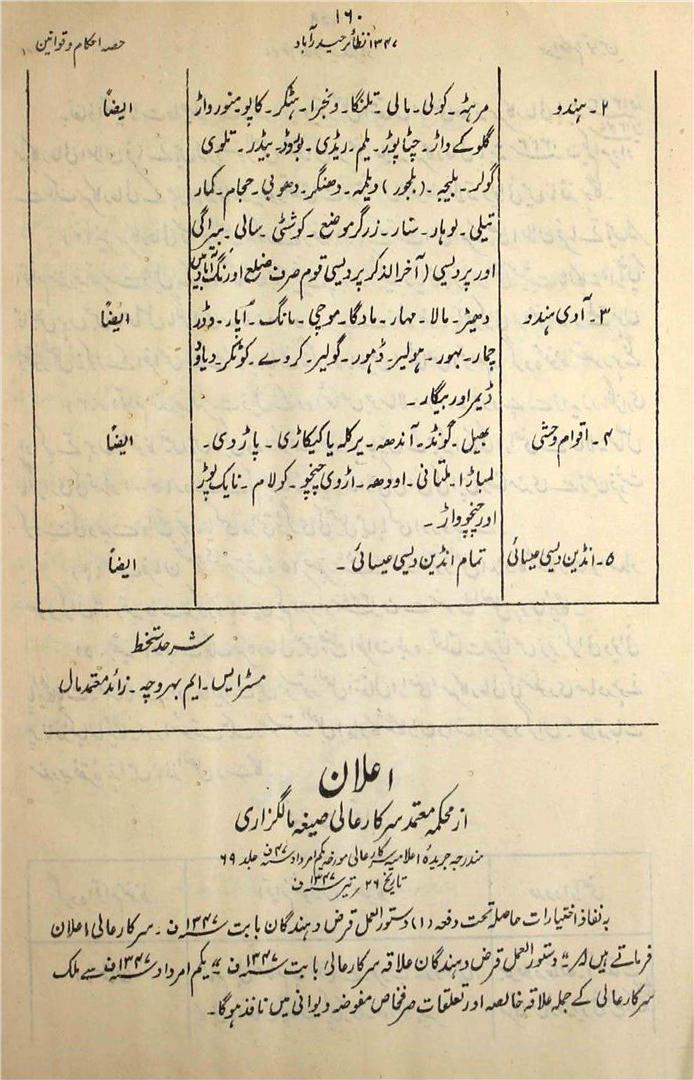 ۱۶۰
۱۳۴۷ نظائر حیدرآباد
حصہ احکام و قوانین
۲۔ ہندو
مرہٹہ۔ کولی۔ مالی۔ تلنگا۔ ونجرا۔ ہٹکر۔ کاپو۔ منورواڑ
ایضاً
گلوکے واڑ۔ چٹاپوڑ۔ یلم۔ ریڈی۔ بوئی۔ بیڈر۔ تلوی
گولر۔ بلیجہ۔ (بلجور) ویلمہ۔ دھنگر۔ دھوبی۔ حجام۔ کمار
تیلی۔ لوہار۔ ستار۔ زرگر موضع۔ کوشٹی۔ سالی۔ بیراگی
اور پردیسی (آخر الذکر پردیسی قوم صرف ضلع اورنگ آباد میں
۳۔ آدی ہندو
دھیڑ۔ مالا۔ مہار۔ مادگا۔ موچی۔ مانگ۔ آپار۔ وڈر
ایضاً
چمار۔ بہور۔ ہولیر۔ ڈہور۔ گولیر۔ کروے۔ کونکر۔ دیاوڈ
ڈیمر اور بیگار۔
۴۔ اقوام وحشی
بھیل۔ گونڈ۔ آندھہ۔ یرکلہ یا کیکاڑی۔ پاردی۔
ایضاً
لمباڑا۔ ملتانی۔ اودھہ۔ اڑوی چنچو۔ کولام۔ نایک پوڑ
اور چنچوواڑ۔
۵۔ انڈین دیسی عیسائی
تمام انڈین دیسی عیسائی۔
ایضاً
شرحد ستخط
مسٹر ایس۔ ایم بہروچہ۔ زائد معتمد مال
اعلان
از محکمہ معتمد سرکار عالی صیغہ مالگزاری
مندرجہ جریدہ اعلامیہ سرکار عالی مورخہ یکم امرداد ۴۷ ف جلد ۶۹
تاریخ ۲۶ تیر ۱۳۴۷ ف
بہ نفاذ اختیارات حاصلہ تحت دفعہ (۱) دستور العمل قرض دہندگان بابت ۱۳۴۷ ف۔ سرکار عالی اعلان
فرماتے ہیں کہ "دستور العمل قرض دہندگان علاقہ سرکار عالی بابت ۱۳۴۷ ف" یکم امرداد ۱۳۴۷ ف سے ملک
سرکار عالی کے جملہ علاقہ خالصہ اور تعلقات صرفخاص مفوضہ دیوانی میں نافذ ہوگا۔